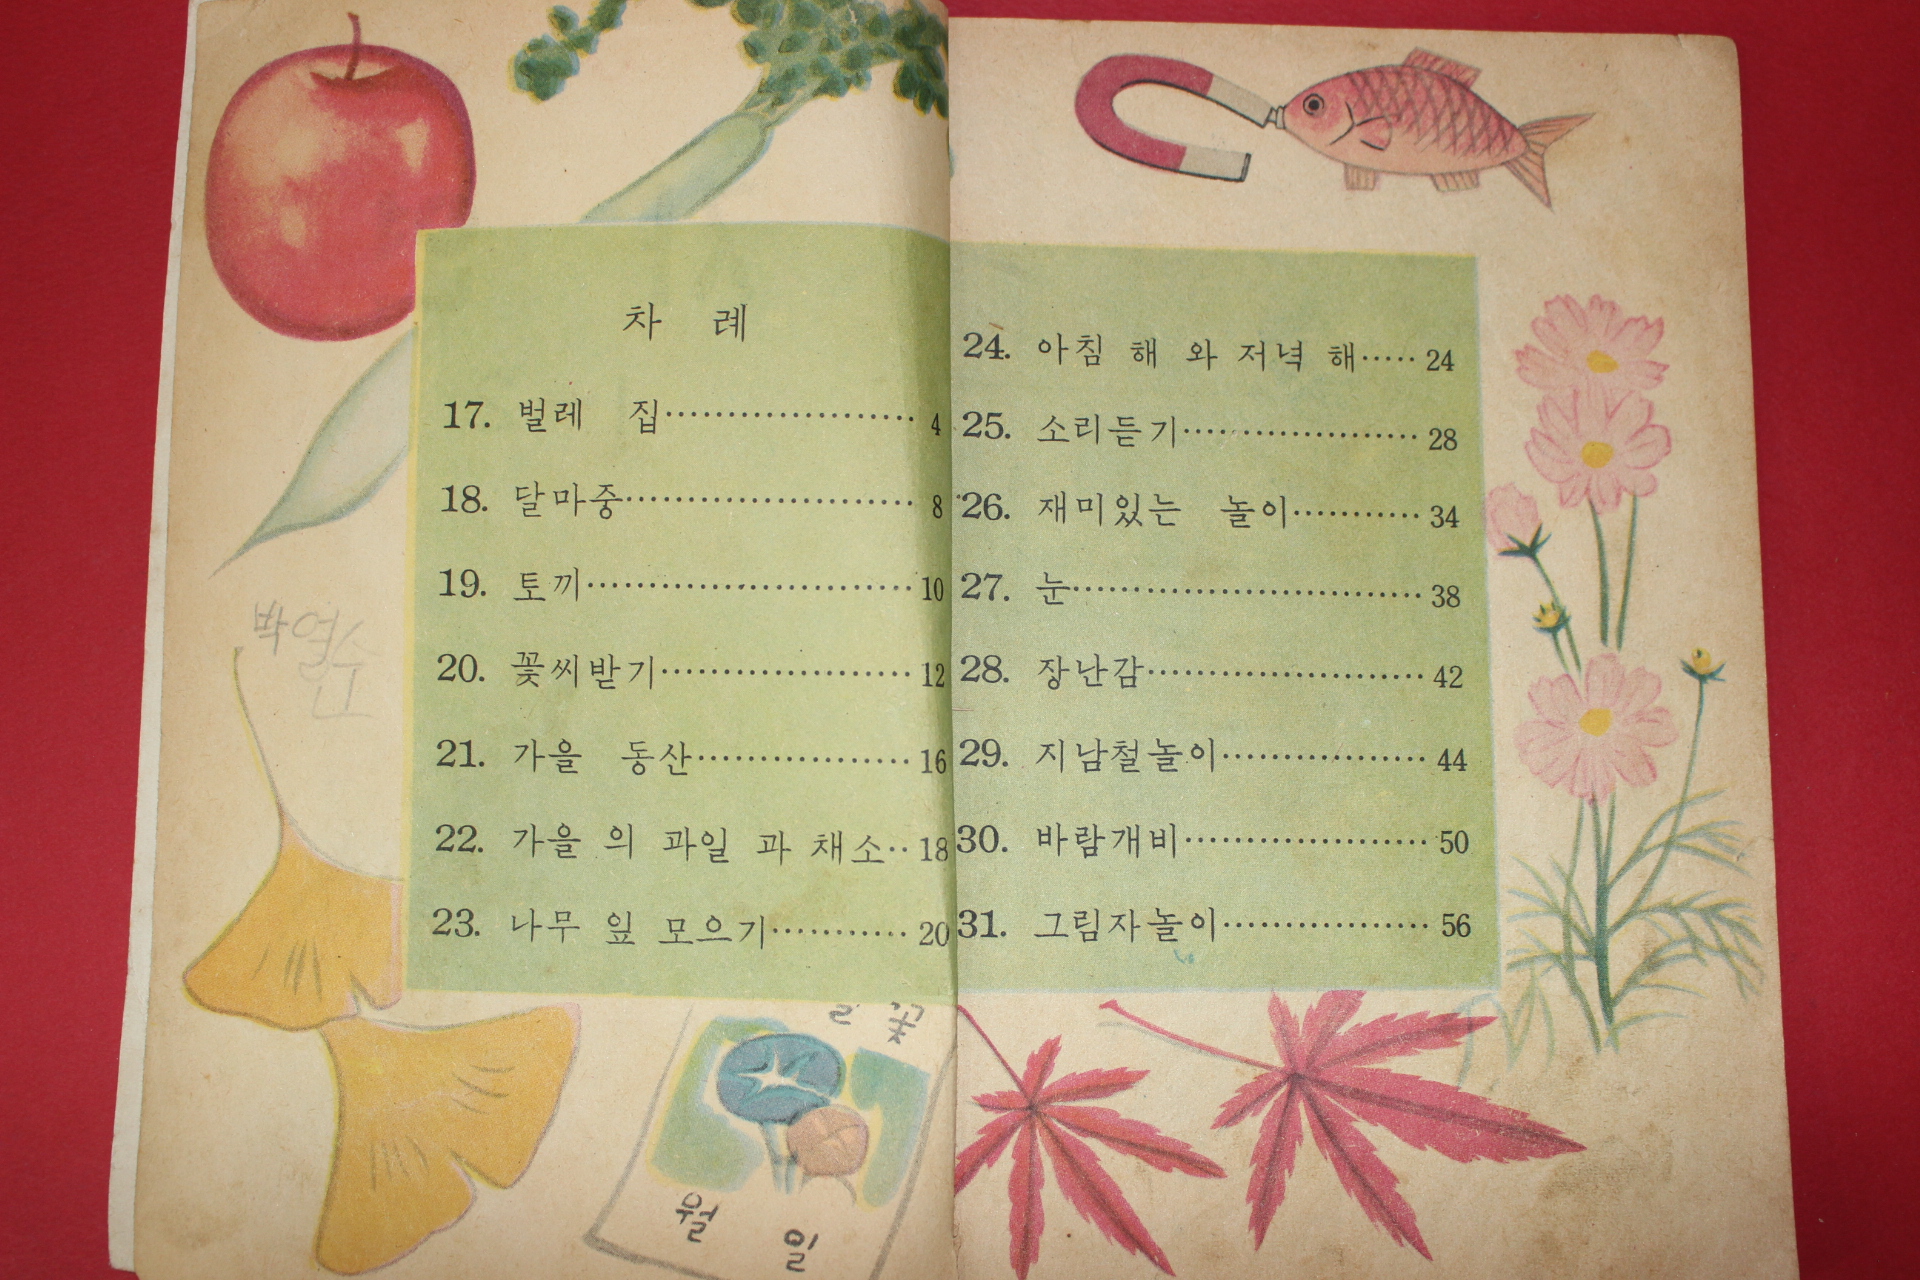 차 례
17. 벌레 집 4
18. 달마중 8
19. 토끼 10
20. 꽃씨받기 12
21. 가을 동산 16
22. 가을 의 과일 과 채소 18
23. 나무 잎 모으기 20
24. 아침 해 와 저녁 해 24
25. 소리듣기 28
26. 재미있는 놀이 34
27. 눈 38
28. 장난감 42
29. 지남철놀이 44
30. 바람개비 50
31. 그림자놀이 56
꽃
월
일